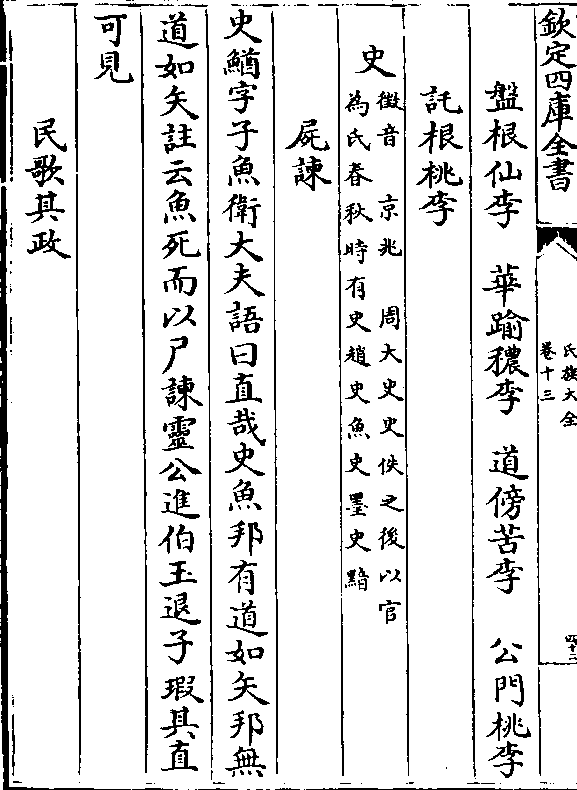 欽定四庫全書
氏族大全
卷十三
四十二
盤根仙李　華踰穠李　道傍苦李　公門桃李
託根桃李
史
徵音　京兆　周大史史佚之後以官
為氏春秋時有史趙史魚史墨史黯
屍諫
史鰌字子魚衛大夫語曰直哉史魚邦有道如矢邦無
道如矢註云魚死而以尸諫靈公進伯玉退子瑕其直
可見
民歌其政